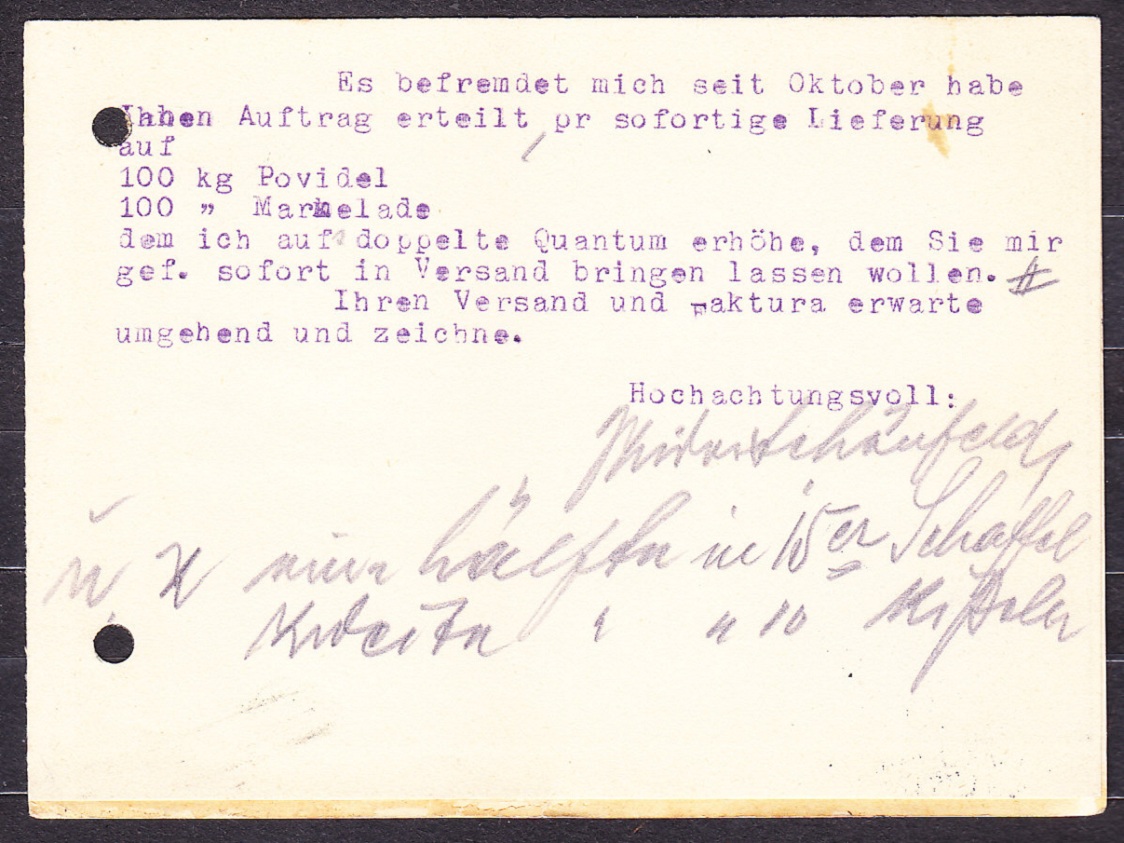 Es befremdet mich seit Oktober habe
Ihnen Auftrag erteilt, pr sofortige Lieferung
auf
100 kg Povidel
100 " Marmelade
dem ich auf doppelte Quantum erhöhe, dem Sie mir
gef. sofort in Versand bringen lassen wollen.
Ihren Versand und Faktura erwarte
umgehend und zeichne.
Hochachtungsvoll:
eine hälfte in 15er Schaffel
zweite " " 10